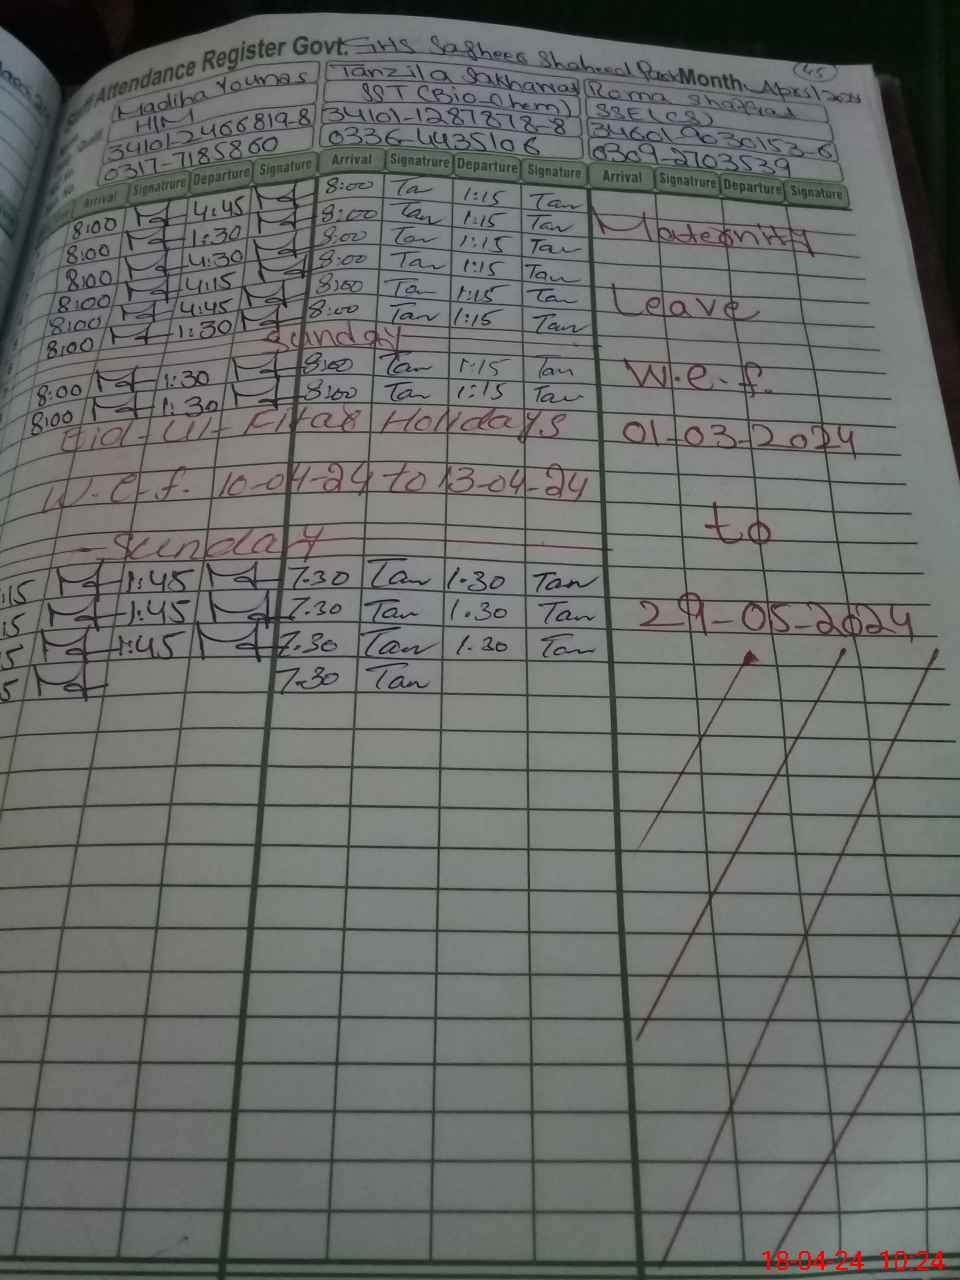 Attendance Register Govt. GHS Sagheer Shaheed Park Month April 2024
45
Madiha Younas Tanzila Sakhawat Roma
HM SST (Bio-Chem) SSE (CS)
34101-2466819-8 34101-1287878-8 34601-9030153-6
0317-7185860 0336-4435106 0309-2703539
Arrival Signatrure Departure Signature Arrival Signatrure Departure Signature Arrival Signatrure Departure Signature
8:00 4:45 8:00 Ta 1:15 Tan
8:00 1:30 8:00 Tan 1:15 Tan
8:00 4:30 8:00 Tan 1:15 Tan
8:00 4:15 8:00 Tan 1:15 Tan
8:00 4:45 8:00 Tan 1:15 Tan
8:00 1:30 8:00 Tan 1:15 Tan
Sunday
8:00 1:30 8:00 Tan 1:15 Tan
8:00 1:30 8:00 Tan 1:15 Tan
Eid-Ul-Fitar Holidays
W.e.f. 10-04-24 to 13-04-24
Sunday
:15 1:45 7.30 Tan 1.30 Tan
15 1:45 7.30 Tan 1.30 Tan
5 1:45 7.30 Tan 1.30 Tan
5 7.30 Tan
Maternity
Leave
W.e.f.
01-03-2024
to
29-05-2024
18-04-24 10:24